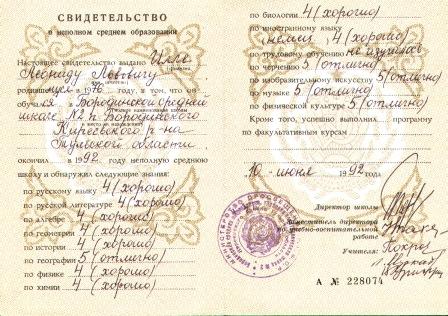 СВИДЕТЕЛЬСТВО
о неполном среднем образовании
Настоящее свидетельство выдано
Леониду Львовичу
родившемуся в 1976 году, в том, что он
обучался в Бородинской средней
школе №2 п. Бородинского
Киреевского р-на
Тульской области
окончил в 1992 году неполную среднюю
школу и обнаружил следующие знания:
по русскому языку 4 (хорошо)
по русской литературе 4 (хорошо)
по алгебре 4 (хорошо)
по геометрии 4 (хорошо)
по истории 4 (хорошо)
по географии 5 (отлично)
по физике 4 (хорошо)
по химии 4 (хорошо)
по биологии 4 (хорошо)
по иностранному языку
немец. 4 (хорошо)
по трудовому обучению не изучалось
по черчению 5 (отлично)
по изобразительному искусству 5 (отлично)
по музыке 5 (отлично)
по физической культуре 5 (отлично)
Кроме того, успешно выполнил программу
по факультативным курсам
10 июня 1992 года
Директор школы
Заместитель директора
по учебно-воспитательной
работе
Учителя:
А № 228074